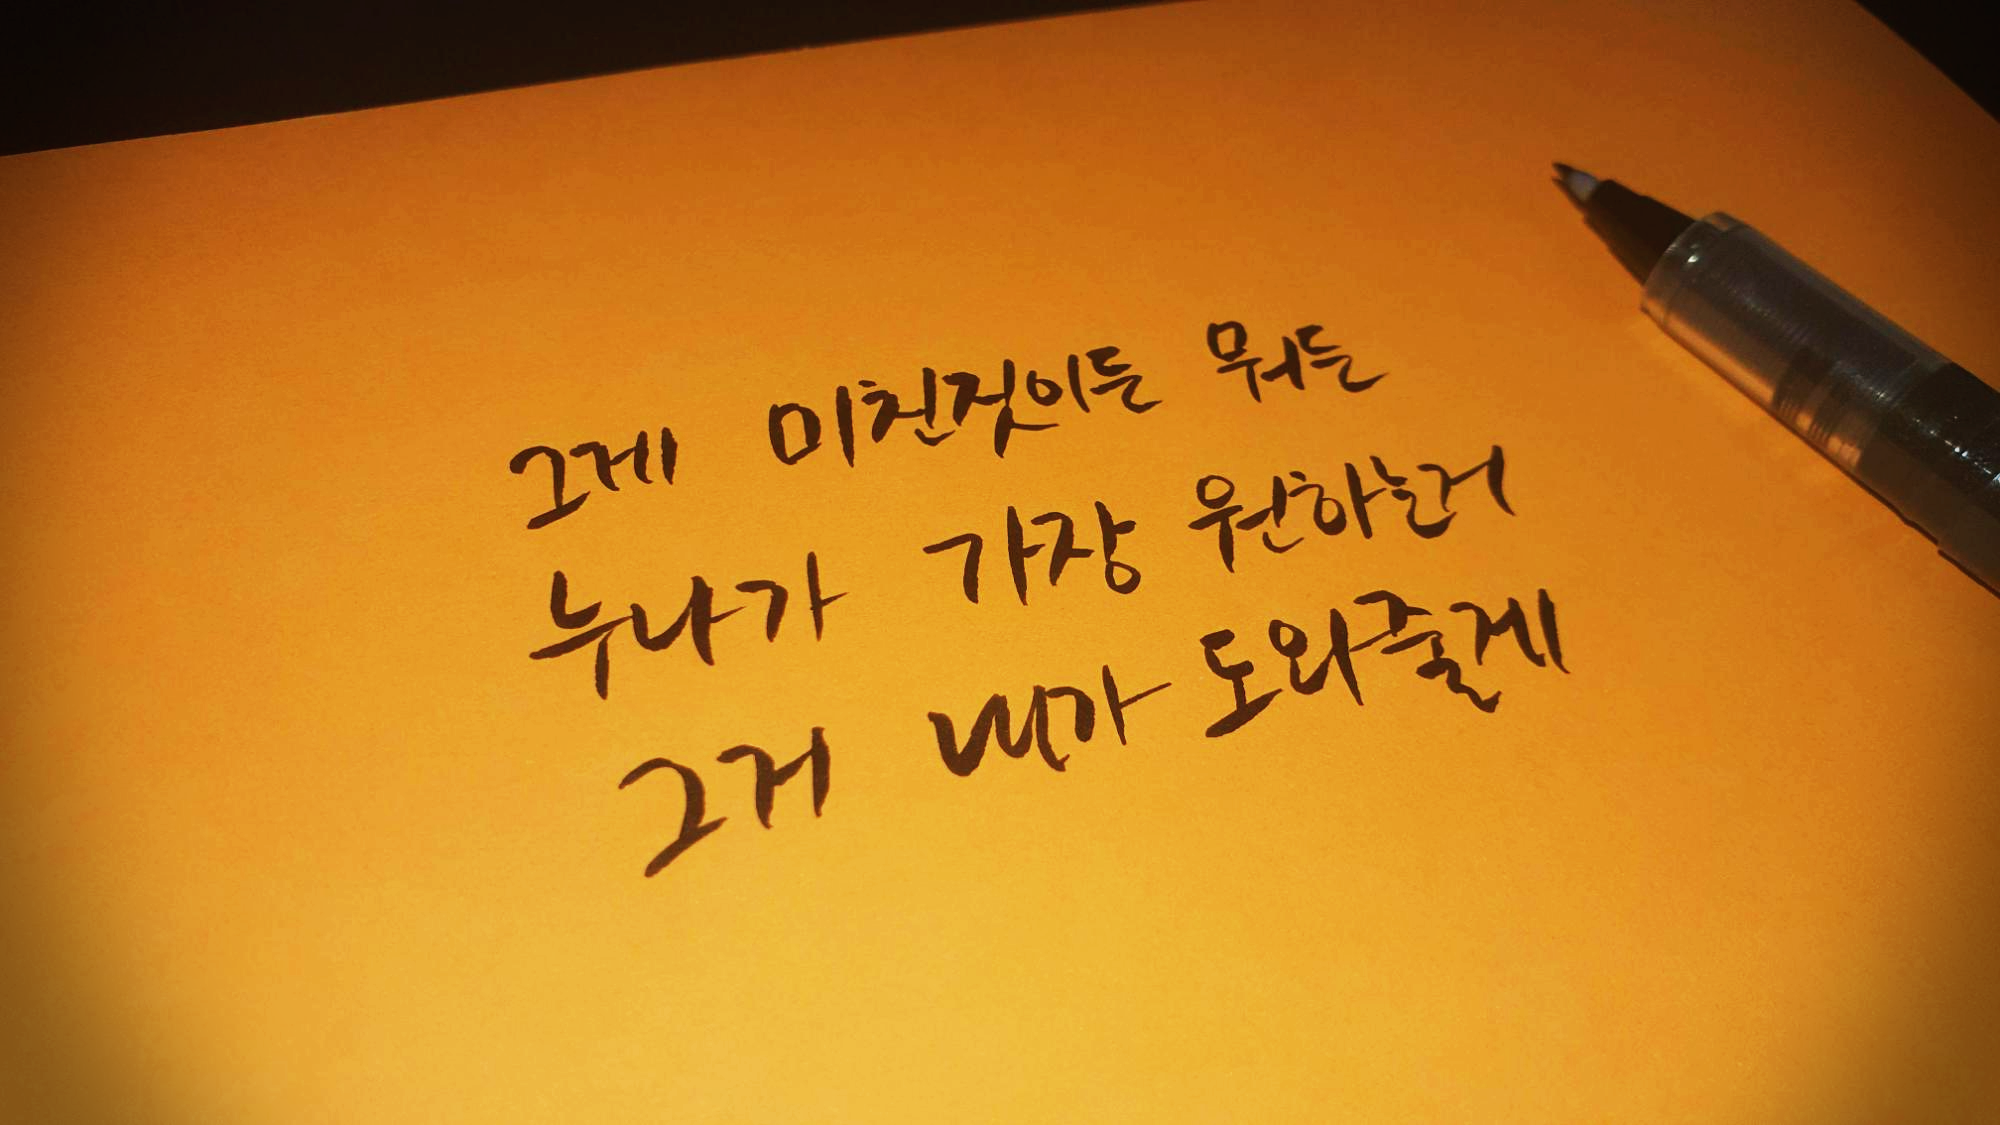 그게 미친짓이든 뭐든
누나가 가장 원하는거
그거 내가 도와줄게